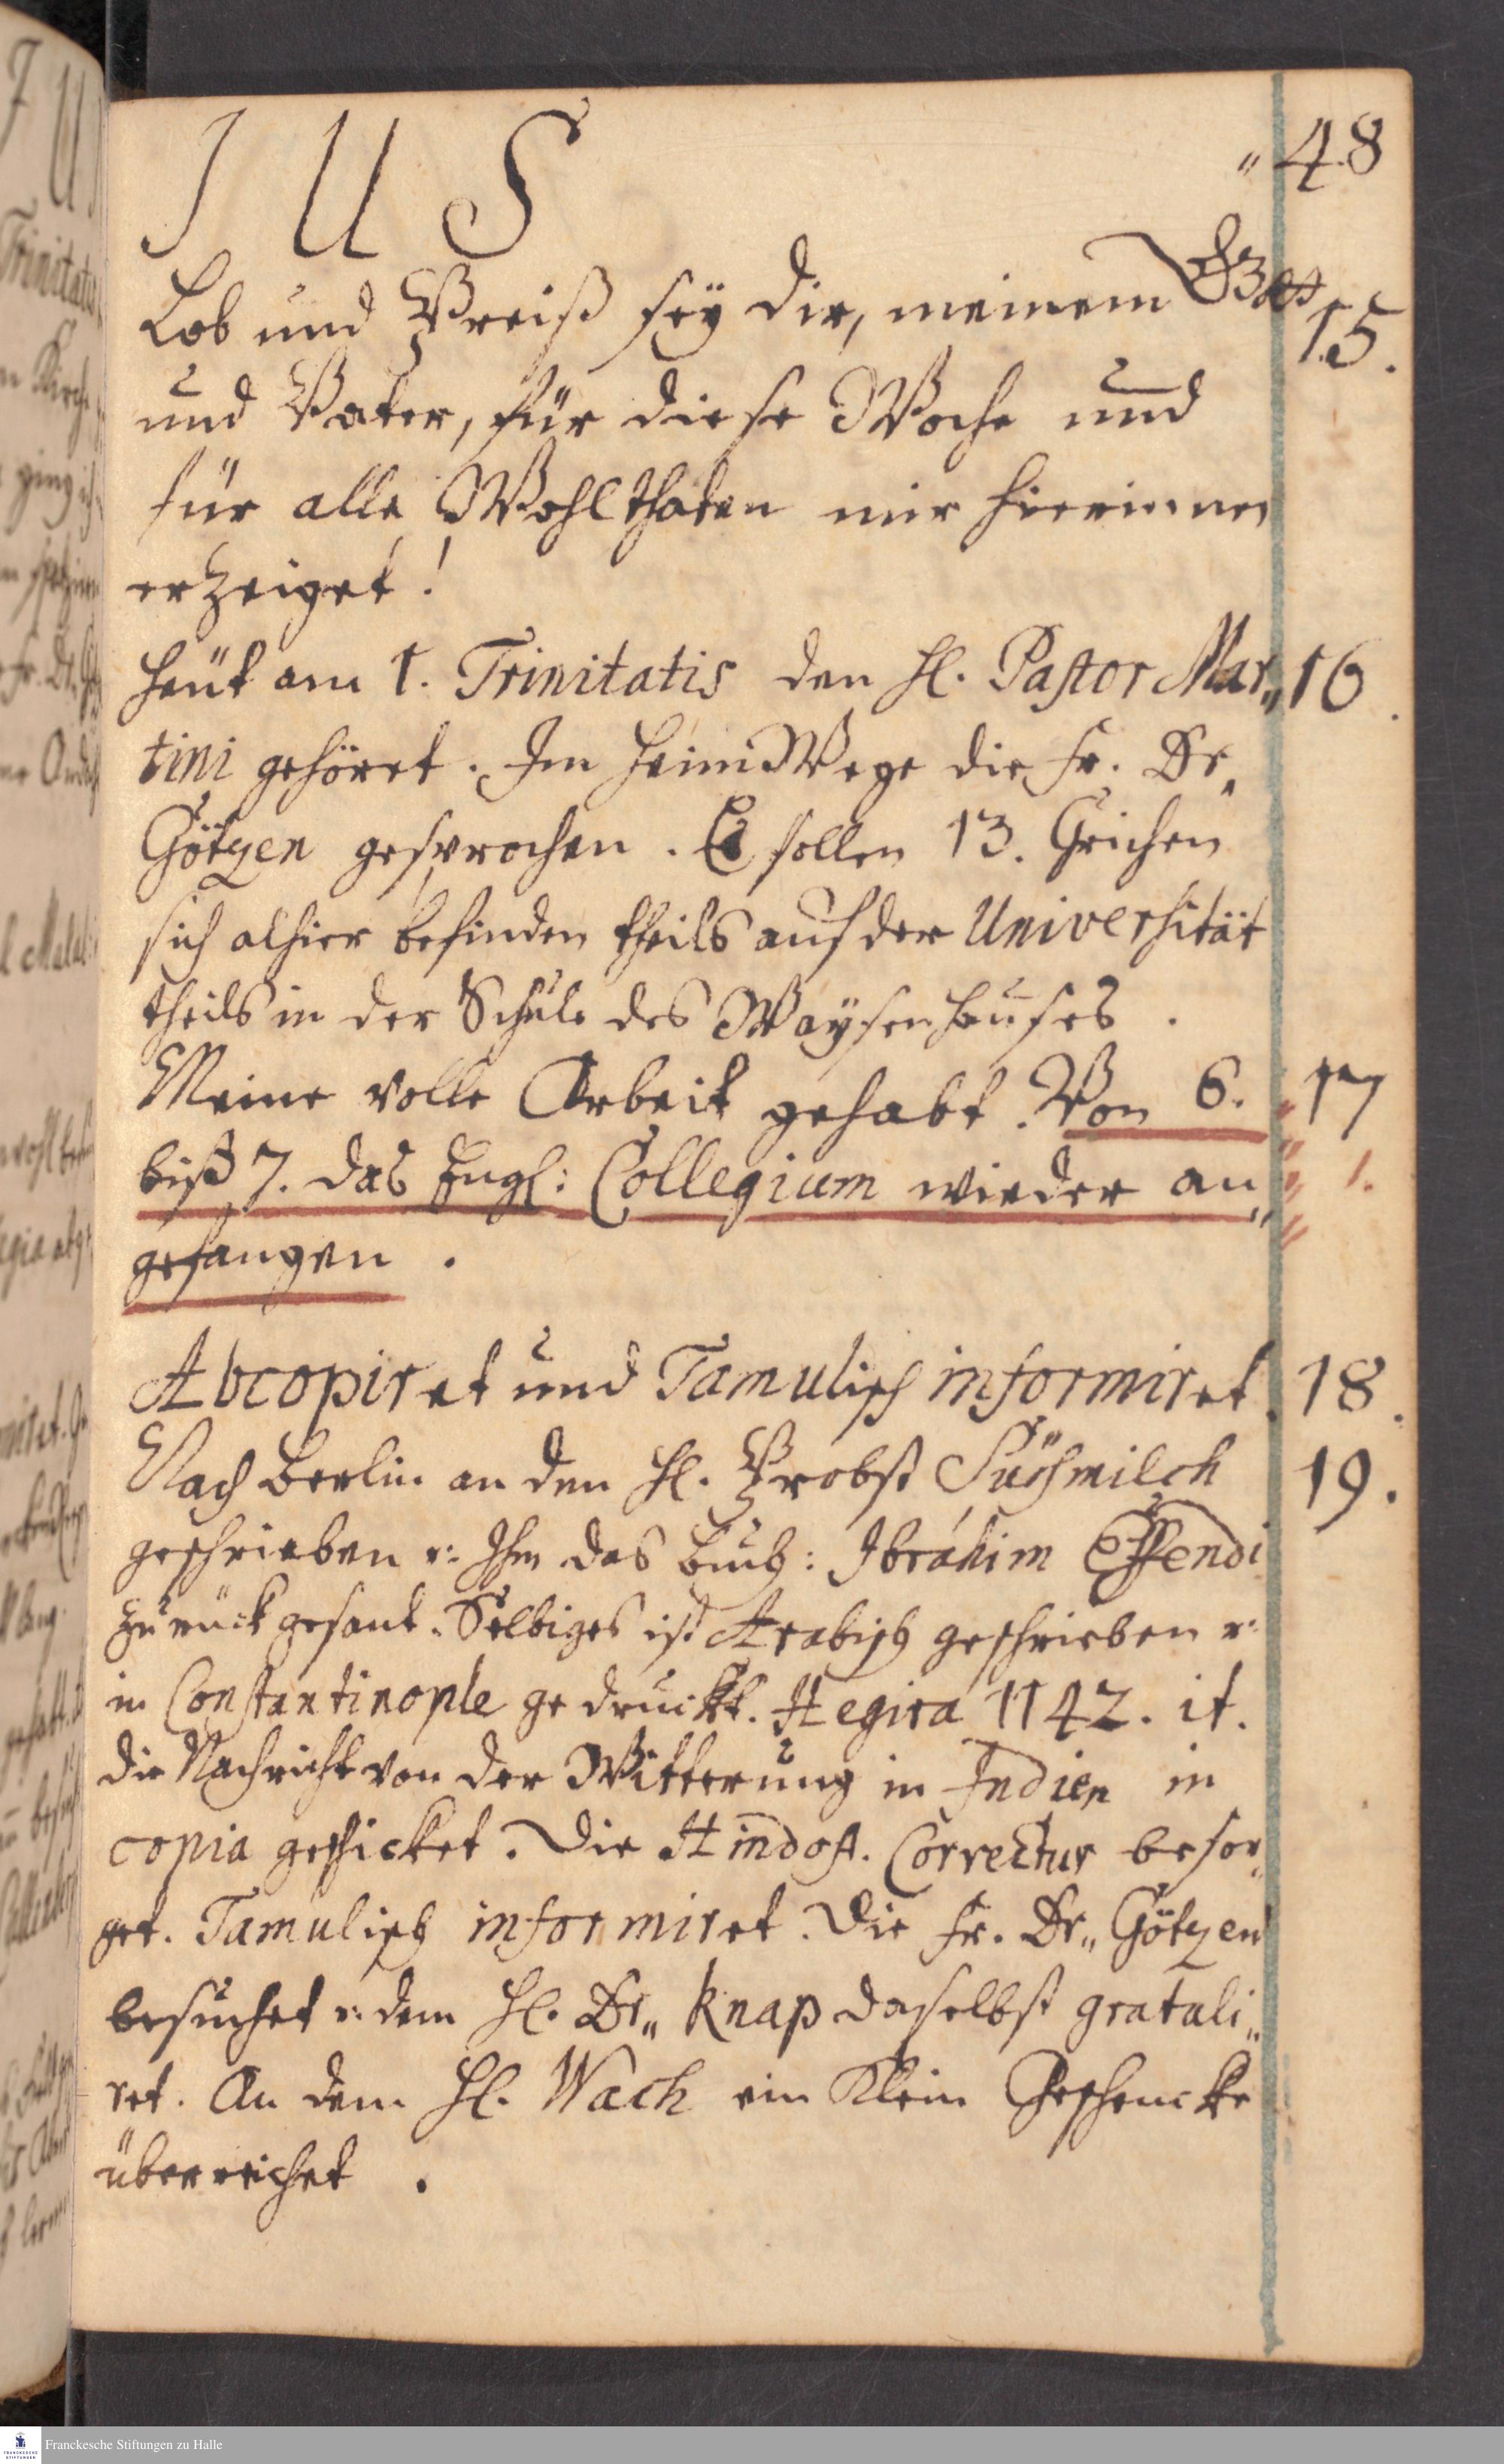 J U S „ 48
Lob und Preiß seÿ dir, meinem Gott 15.
und Vater, für diese Woche und
für alle Wohlthaten mir hierinnen
erzeiget!
Heut am 1. Trinitatis den Hl. Pastor Mar„ 16.
tini gehöret. Im HeimWege die Fr. Dr„
Götzen gesprochen. Es sollen 13. Grichen
sich alhier befinden theils auf der Universität
theils in der Schule des Waÿsenhauses.
Meine volle Arbeit gehabt. Von 6. 17
biß 7. das Engl: Collegium wieder an„ 1.
gefangen.
Abcopiret und Tamulisch informiret. 18.
Nach Berlin an den Hl. Probst Süßmilch 19.
geschrieben u. Ihm das Buch: Ibrahim Effendi
zurück gesant. Selbiges ist Arabisch geschrieben u.
in Constantinople gedruckt. Hegira 1142. it.
die Nachricht von der Witterung in Indien in
copia geschicket. Die Hindost. Correctur besor„
get. Tamulisch informiret. Die Fr. Dr„ Götzen
besuchet u. dem Hl. Dr„ Knap daselbst gratuli„
ret. An dem Hl. Wach ein Klein Geschencke
überreichet.
Franckesche Stiftungen zu Halle